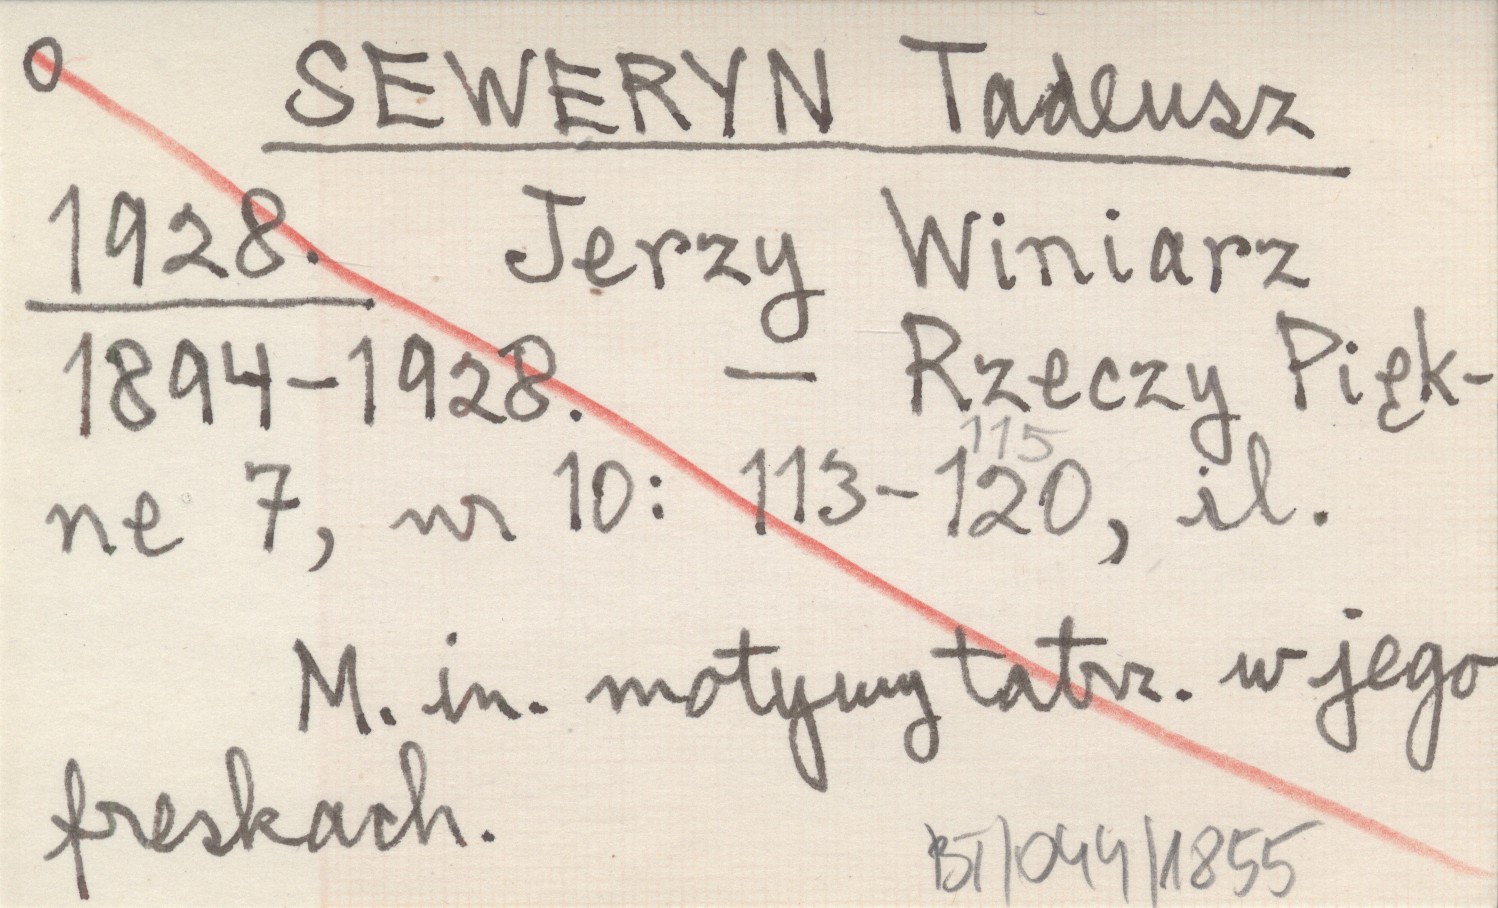 0 SEWERYN Tadeusz
1928. Jerzy Winiarz
1894-1928. — Rzeczy Pięk-
115
ne 7, nr 10: 113-120, il.
M. in. motywy tatrz. w jego
freskach.
BT/044/1855